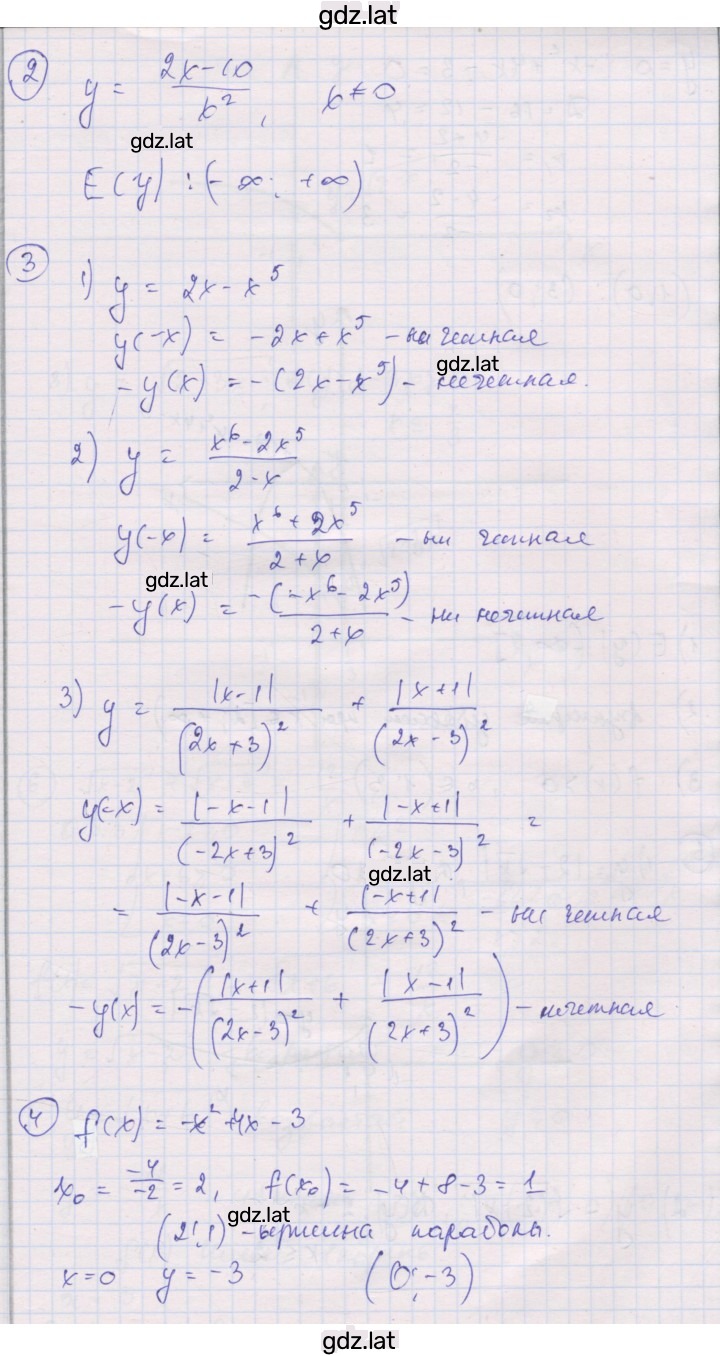 gdz.lat
2
y = (2x-10)/x², x≠0
gdz.lat
E(y): (-∞; +∞)
3
1) y = 2x-x⁵
y(-x) = -2x+x⁵ - ни четная
gdz.lat
-y(x) = -(2x-x⁵) - нечетная.
2) y = (x⁶-2x⁵)/(2-x)
y(-x) = (x⁶+2x⁵)/(2+x) - ни четная
gdz.lat
-y(x) = -(-x⁶-2x⁵)/(2+x) - ни нечетная
3) y = |x-1|/(2x+3)² + |x+1|/(2x-3)²
y(-x) = |-x-1|/(-2x+3)² + |-x+1|/(-2x-3)² =
gdz.lat
= |-x-1|/(2x-3)² + |-x+1|/(2x+3)² - четная
-y(x) = -(|x+1|/(2x-3)² + |x-1|/(2x+3)²) - нечетная
4
f(x) = -x²+4x-3
x₀ = -4/-2 = 2, f(x₀) = -4+8-3 = 1
gdz.lat
(2;1) - вершина параболы.
x=0 y=-3 (0;-3)
gdz.lat